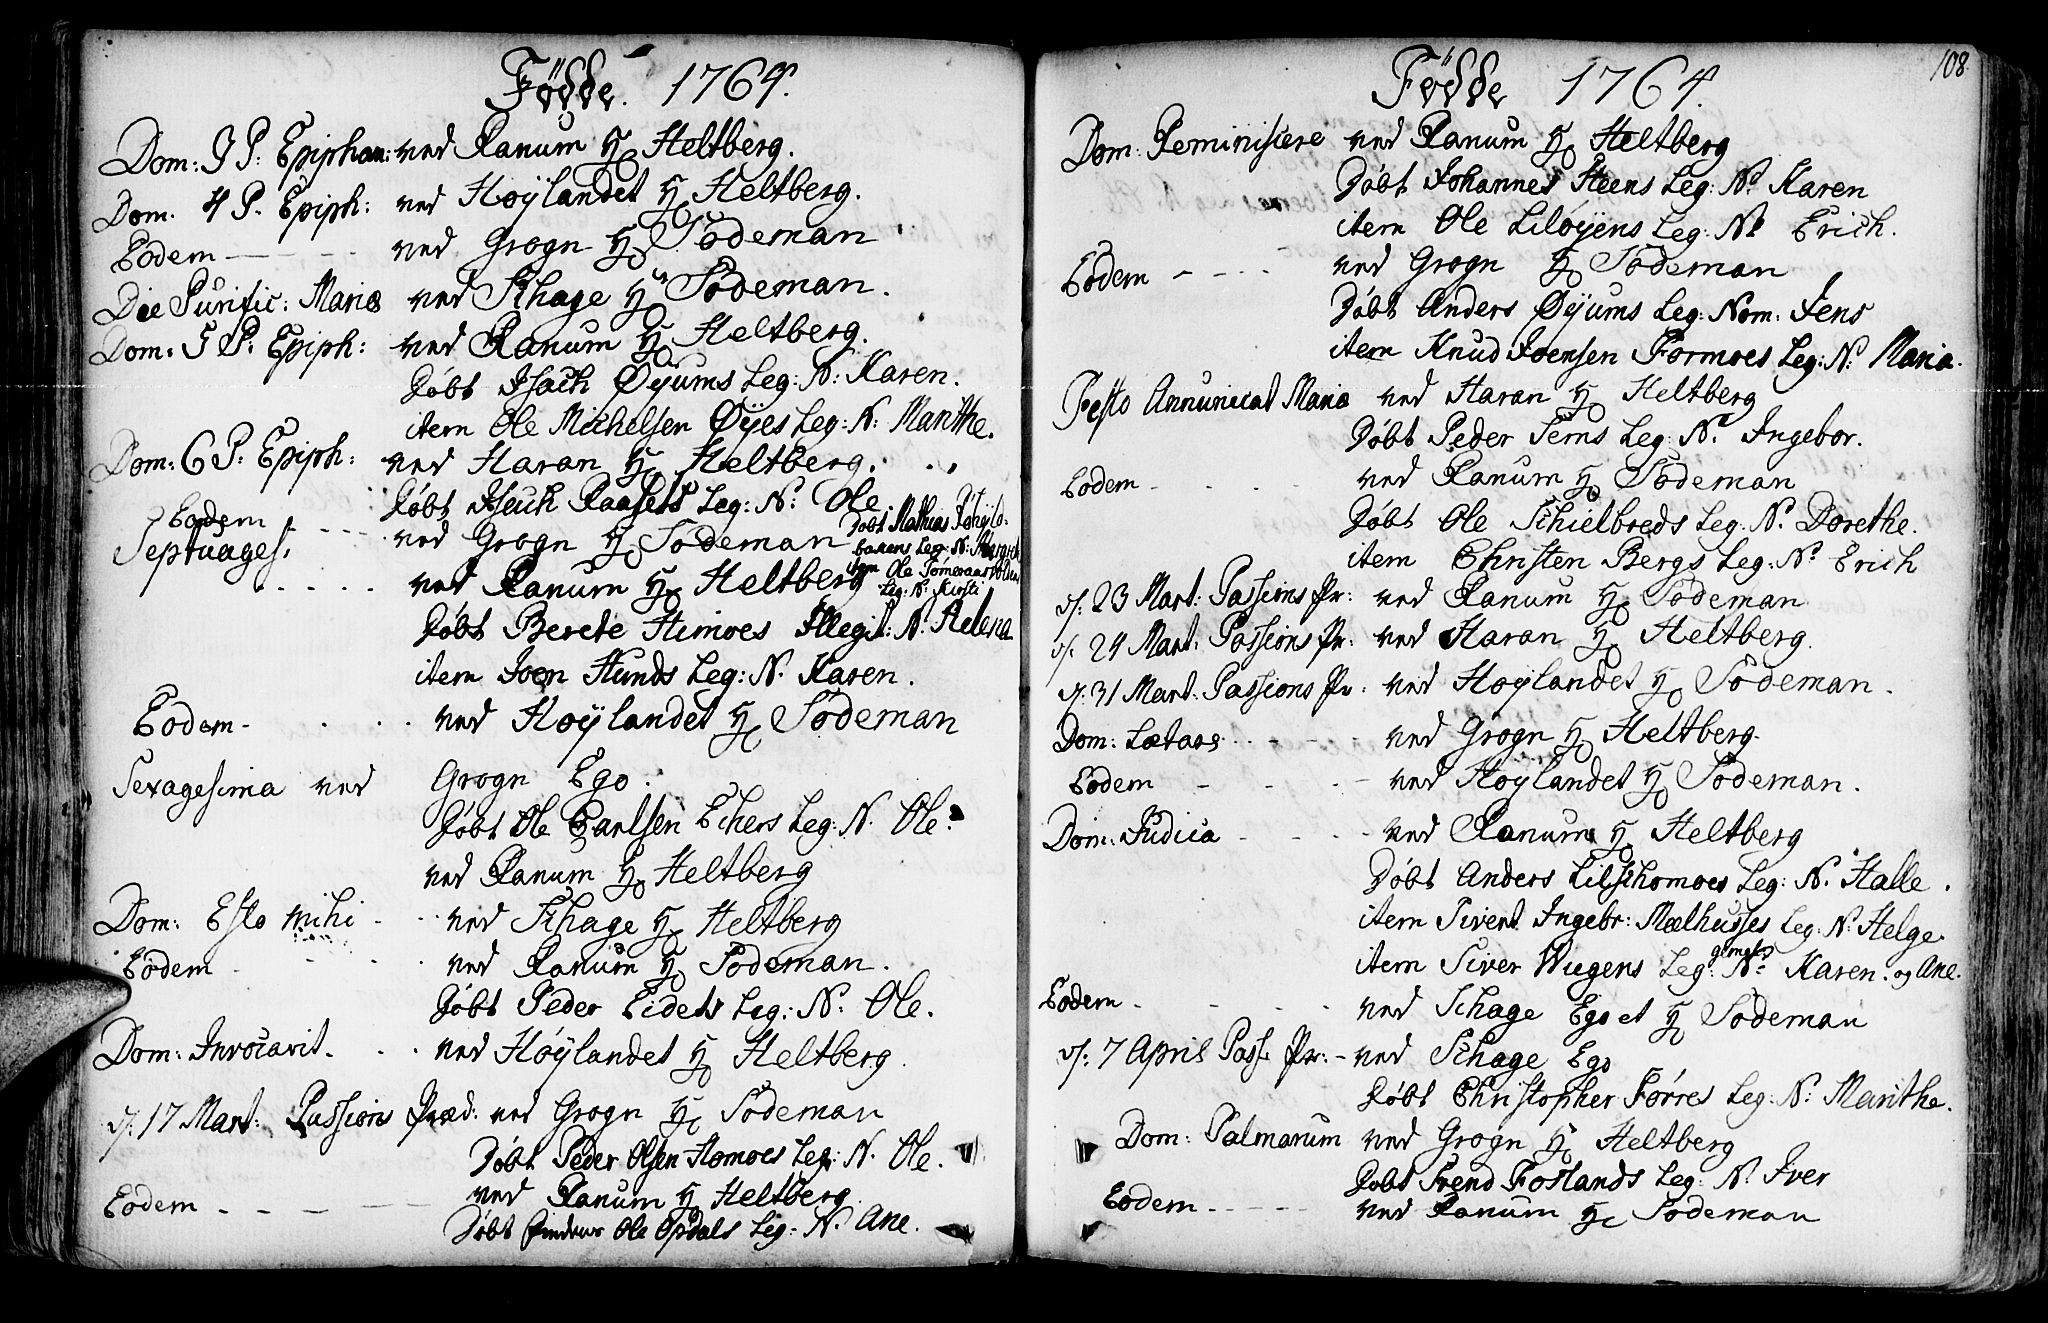 Födde. 1764.
Dom: 3 P: Epiphan: ved Ranum H. Heltberg.
Dom. 4 P. Epiph: ved Høylandet H. Heltberg.
Eodem - - - - ved Grogn H. Södeman
Die Purific: Mariæ ved Schage H. Södeman.
Dom. 5 P. Epiph: ved Ranum H. Heltberg.
Döbt Isach Øyums Leg: N: Karen.
item Ole Michelsen Øyes Leg: N: Marithe.
Dom: 6 P. Epiph: ved Haran H. Heltberg.
Döbt Isach Leg: N: Ole
Eodem - - - - ved Grogn H. Södeman Döbt Mathias
Leg: N:
item Ole
Leg: N: Kirsti
Septuages. . . . . ved Ranum H. Heltberg
Döbt Berete Himoes Illegit: N. Helena
item Joen Hunds Leg: N. Karen.
Eodem - . . . ved Høylandet H. Södeman
Sexagesima ved Grogn Ego.
Döbt Ole Carlsen Echers Leg: N. Ole.
ved Ranum H. Heltberg
Dom: Esto mihi - . . ved Schage H. Heltberg
Eodem - - - - ved Ranum H. Södeman.
Döbt Peder Eidets Leg: N. Ole.
Dom: Invocavit. . . ved Høylandet H. Heltberg
d: 17 Mart: Passions Præd: ved Grogn H. Södeman
Döbt Peder Olsen Homoes Leg: N. Ole.
Eodem - - - - - ved Ranum H. Heltberg.
Döbt Ole Opdals Leg: N. Ane.
108.
Födde 1764.
Dom: Reminiscere ved Ranum H. Heltberg
Döbt Johannes Steens Leg: N. Karen
item Ole Liløyens Leg: N. Erich.
Eodem - - - - ved Grogn H. Södeman
Döbt Anders Øyums Leg: Nom: Jens
item Knud Joensen Formoes Leg: N: Maria.
Festo Annunciat Mariæ ved Haran H. Heltberg
Döbt Peder Sems Leg: N. Ingebor.
Eodem - . . . ved Ranum H. Södeman
Döbt Ole Schielbreds Leg: N. Dorethe.
item Christen Bergs Leg: N. Erich
d: 23 Mart: Passions Pr: ved Ranum H. Södeman
d: 24 Mart: Passions Pr: ved Haran H. Heltberg.
d: 31 Mart: Passions Pr: ved Høylandet H. Södeman.
Dom: Lætare . . - . ved Grogn H. Heltberg.
Eodem - - - - ved Høylandet H. Södeman.
Dom: Judica - - - - ved Ranum H. Heltberg
Döbt Anders Lilschomoes Leg: N. Halle.
item Sivert Ingebr: Mælhusses Leg: N: Helge.
item Siver Wiegens Leg: N: Karen. og Ane.
Eodem - - - - ved Schage Ego et H. Södeman
d: 7 April Pass: Pr: - ved Schage Ego
Döbt Christopher Førres Leg: N: Marithe.
Dom: Palmarum ved Grogn H. Heltberg
Döbt Trend Foslands Leg: N. Iver
Eodem - - - - - ved Ranum H. Södeman